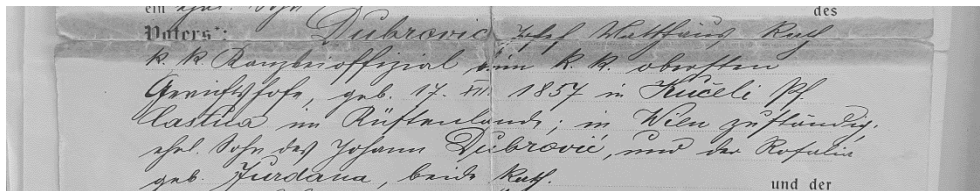 ein ehel. Sohn des
Vaters: Dubrovic Josef Matthäus Kath.
k. k. Kanzleioffizial beim k. k. obersten
Gerichtshofe, geb. 17. XII. 1857 in Kučeli Pf.
Castua im Küstenlande; in Wien zuständig,
ehel. Sohn des Johann Dubrović, und der Rosalia
geb. Jurdana, beide kath.
und der